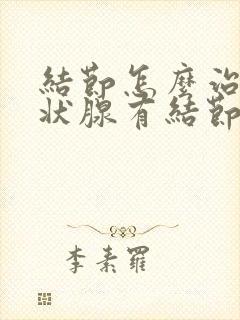 結節怎麼治
狀腺有結節
李素羅